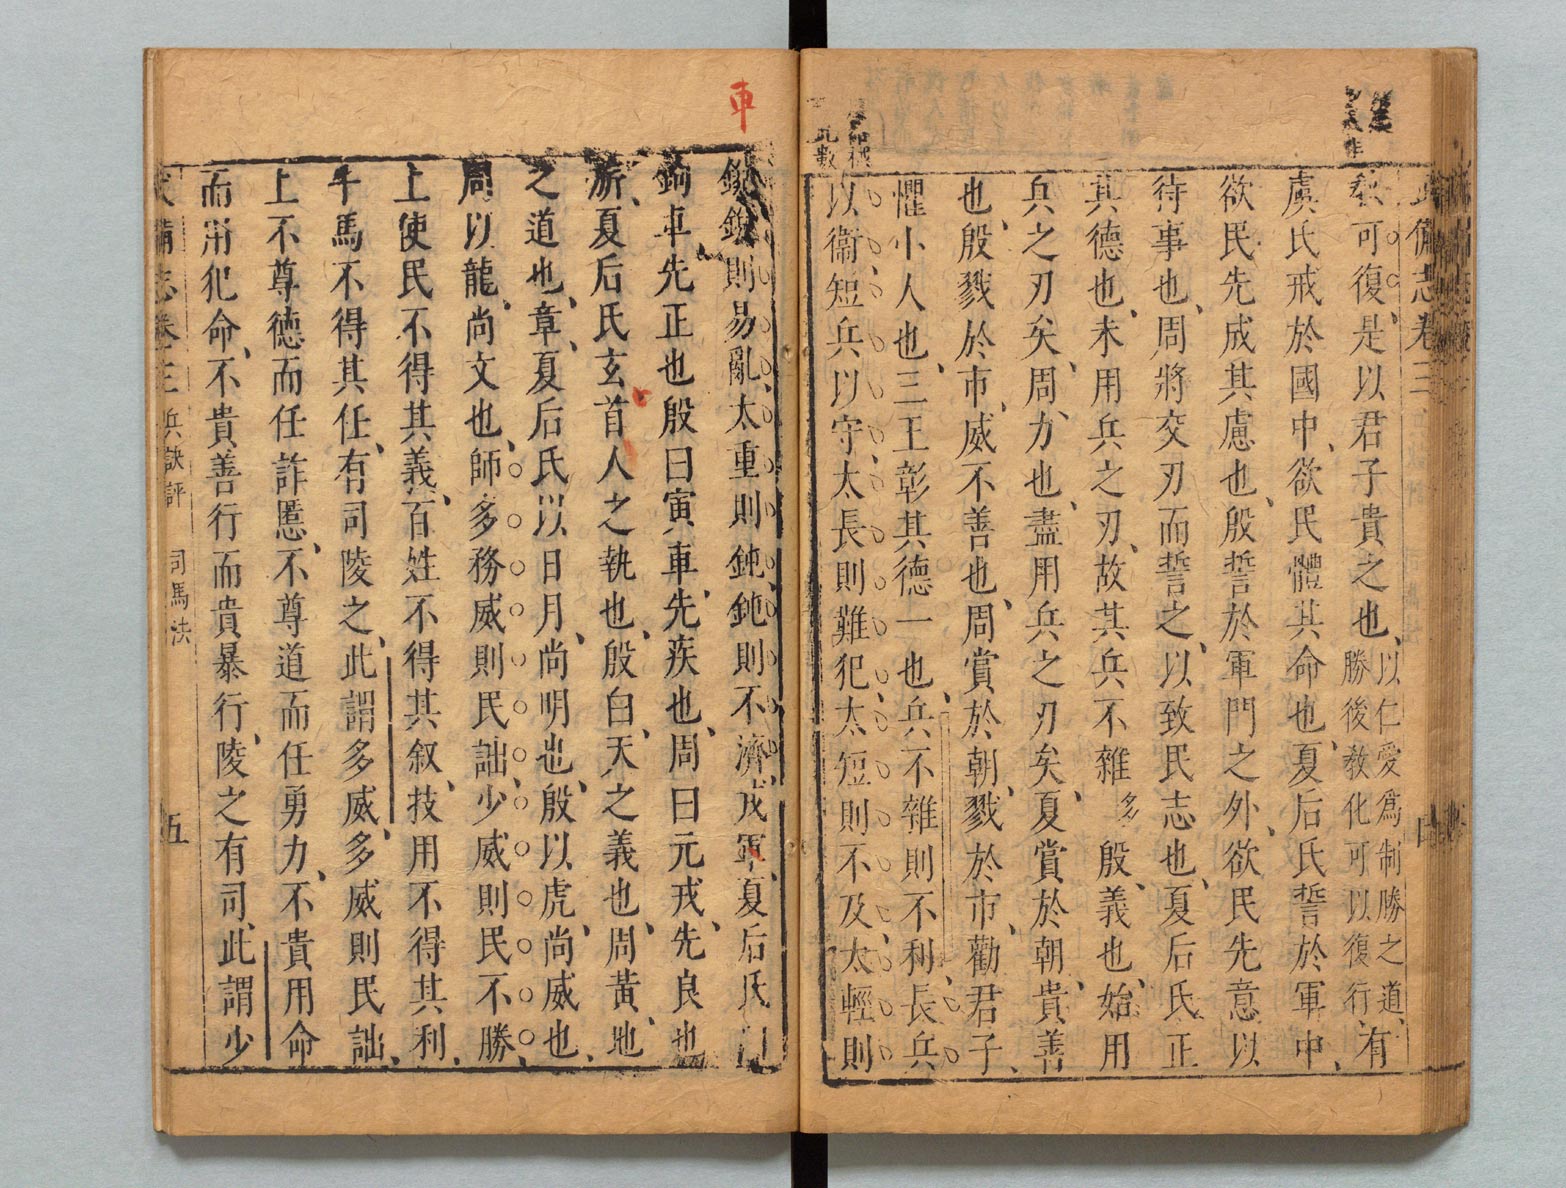 武備志卷三
教可復是以君子貴之也以仁愛爲制勝之道有
勝後教化可以復行
虞氏戒於國中欲民體其命也夏后氏誓於軍中
欲民先成其慮也殷誓於軍門之外欲民先意以
待事也周將交刃而誓之以致民志也夏后氏正
其德也未用兵之刃故其兵不雜多殷義也始用
兵之刃矣周力也盡用兵之刃矣夏賞於朝貴善
也殷戮於市威不善也周賞於朝戮於市勸君子
懼小人也三王彰其德一也兵不雜則不利長兵
以衞短兵以守太長則難犯太短則不及太輕則
車
銳銳則易亂太重則鈍鈍則不濟戎軍夏后氏曰
鉤車先正也殷曰寅車先疾也周曰元戎先良也
旂夏后氏玄首人之執也殷白天之義也周黃地
之道也章夏后氏以日月尚明也殷以虎尚威也
周以龍尚文也師多務威則民詘少威則民不勝
上使民不得其義百姓不得其叙技用不得其利
牛馬不得其任有司陵之此謂多威多威則民詘
上不尊德而任詐慝不尊道而任勇力不貴用命
而用犯命不貴善行而貴暴行陵之有司此謂少
武備志卷三 兵訣評 司馬法 五